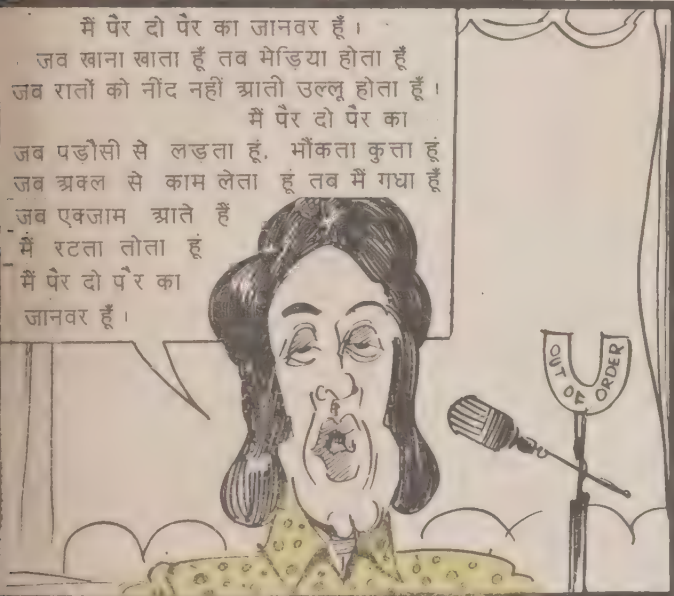 मैं पैर दो पैर का जानवर हूँ।
जब खाना खाता हूँ तब भेड़िया होता हूँ
जब रातों को नींद नहीं आती उल्लू होता हूँ।
मैं पैर दो पैर का
जब पड़ौसी से लड़ता हूं, भौंकता कुत्ता हूं
जब अक्ल से काम लेता हूं तब मैं गधा हूँ
जब एक्जाम आते हैं
मैं रटता तोता हूं
मैं पैर दो पैर का
जानवर हूँ।
OUT OF ORDER